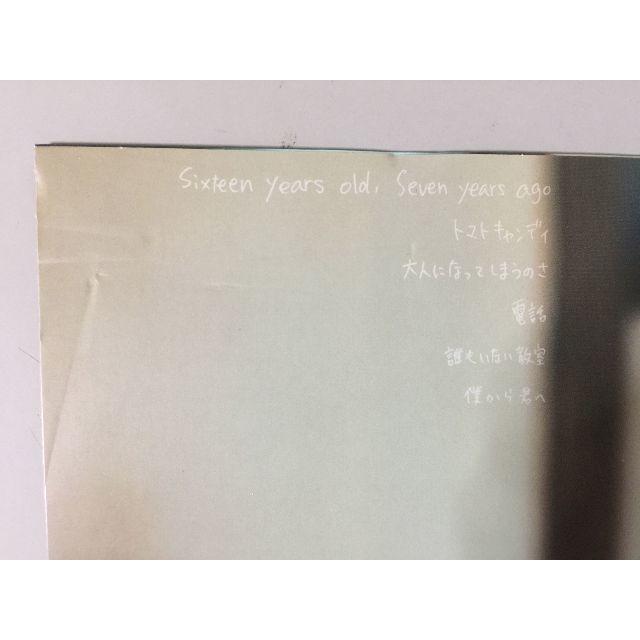 Sixteen years old, Seven years ago
トマトキャンディ
大人になってしまうのさ
電話
誰もいない教室
僕から君へ